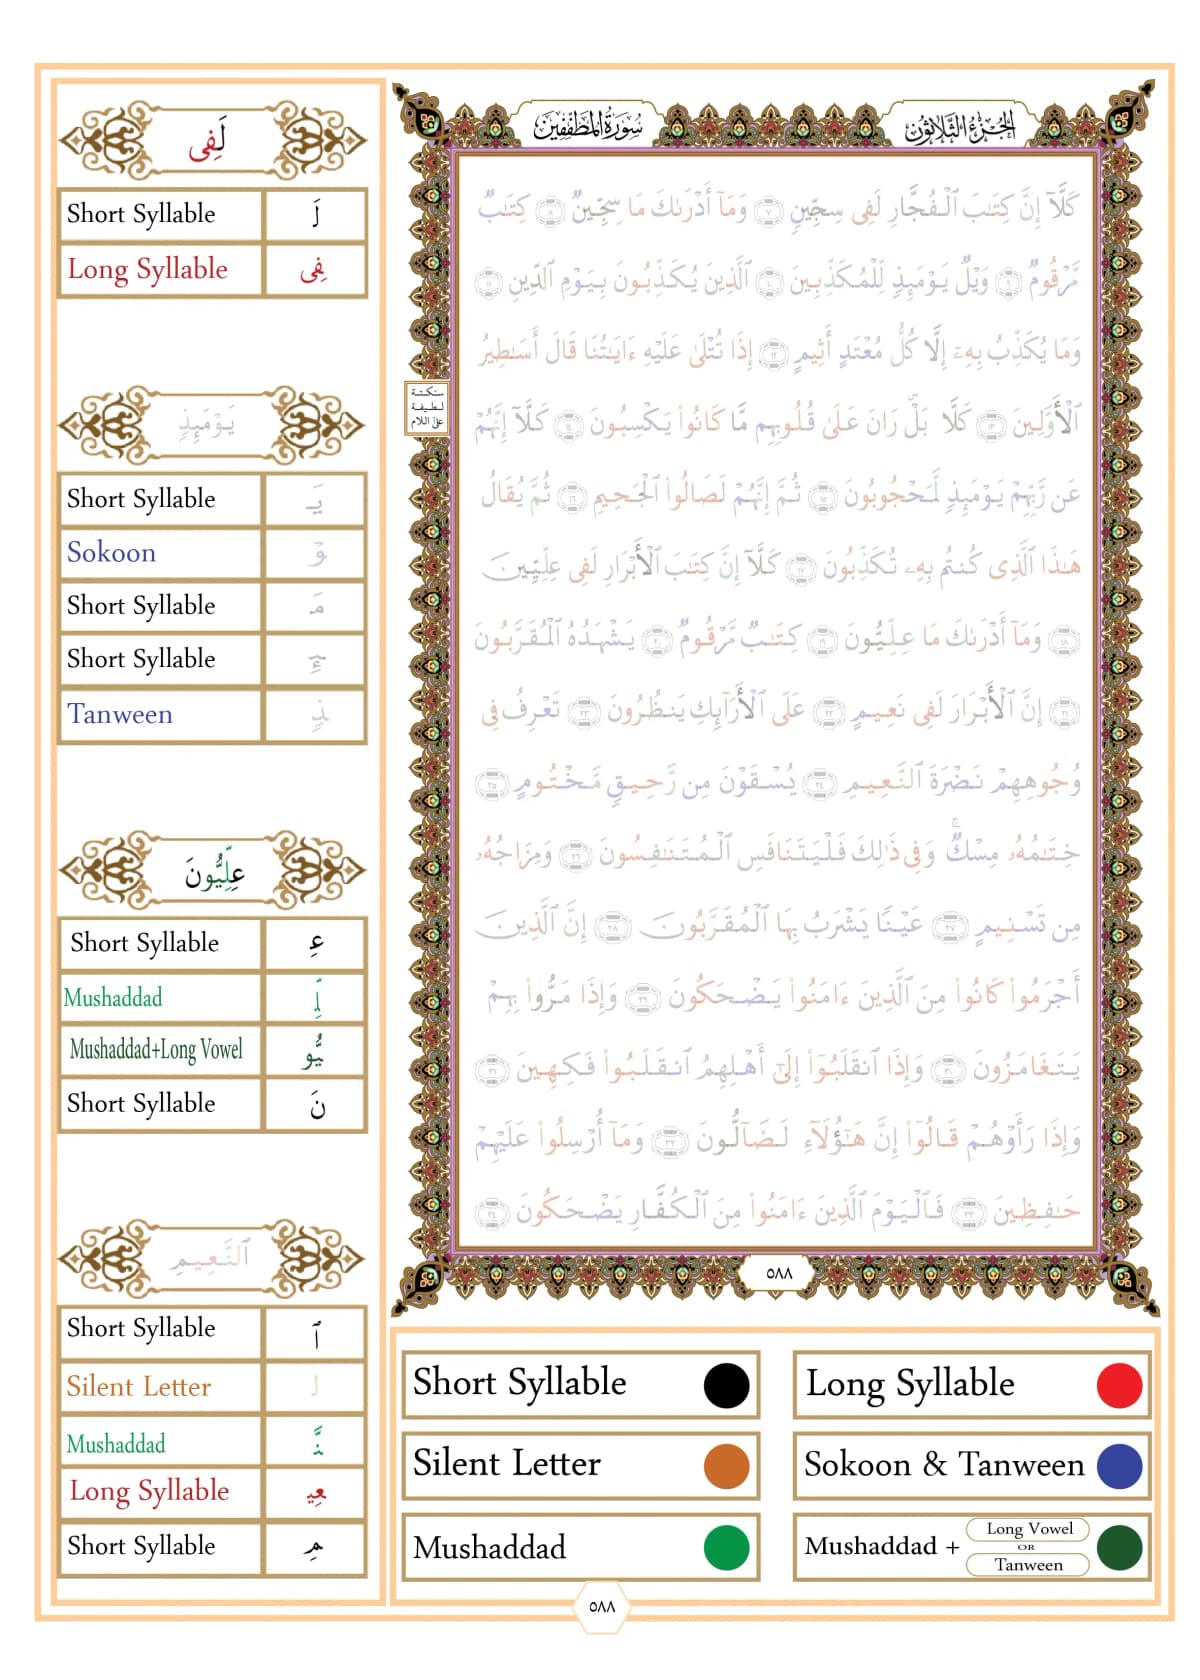 سُورَةُ المُطَفِّفِين
الجُزْءُ الثَّلَاثُون
كَلَّآ إِنَّ كِتَٰبَ ٱلْفُجَّارِ لَفِى سِجِّينٍ ٧ وَمَآ أَدْرَىٰكَ مَا سِجِّينٌ ٨ كِتَٰبٌ
مَّرْقُومٌ ٩ وَيْلٌ يَوْمَئِذٍ لِّلْمُكَذِّبِينَ ١٠ ٱلَّذِينَ يُكَذِّبُونَ بِيَوْمِ ٱلدِّينِ ١١
وَمَا يُكَذِّبُ بِهِۦٓ إِلَّا كُلُّ مُعْتَدٍ أَثِيمٍ ١٢ إِذَا تُتْلَىٰ عَلَيْهِ ءَايَٰتُنَا قَالَ أَسَٰطِيرُ
ٱلْأَوَّلِينَ ١٣ كَلَّا بَلْ رَانَ عَلَىٰ قُلُوبِهِم مَّا كَانُوا۟ يَكْسِبُونَ ١٤ كَلَّآ إِنَّهُمْ
عَن رَّبِّهِمْ يَوْمَئِذٍ لَّمَحْجُوبُونَ ١٥ ثُمَّ إِنَّهُمْ لَصَالُوا۟ ٱلْجَحِيمِ ١٦ ثُمَّ يُقَالُ
هَٰذَا ٱلَّذِى كُنتُم بِهِۦ تُكَذِّبُونَ ١٧ كَلَّآ إِنَّ كِتَٰبَ ٱلْأَبْرَارِ لَفِى عِلِّيِّينَ
١٨ وَمَآ أَدْرَىٰكَ مَا عِلِّيُّونَ ١٩ كِتَٰبٌ مَّرْقُومٌ ٢٠ يَشْهَدُهُ ٱلْمُقَرَّبُونَ
٢١ إِنَّ ٱلْأَبْرَارَ لَفِى نَعِيمٍ ٢٢ عَلَى ٱلْأَرَآئِكِ يَنظُرُونَ ٢٣ تَعْرِفُ فِى
وُجُوهِهِمْ نَضْرَةَ ٱلنَّعِيمِ ٢٤ يُسْقَوْنَ مِن رَّحِيقٍ مَّخْتُومٍ ٢٥
خِتَٰمُهُۥ مِسْكٌ ۚ وَفِى ذَٰلِكَ فَلْيَتَنَافَسِ ٱلْمُتَنَٰفِسُونَ ٢٦ وَمِزَاجُهُۥ
مِن تَسْنِيمٍ ٢٧ عَيْنًا يَشْرَبُ بِهَا ٱلْمُقَرَّبُونَ ٢٨ إِنَّ ٱلَّذِينَ
أَجْرَمُوا۟ كَانُوا۟ مِنَ ٱلَّذِينَ ءَامَنُوا۟ يَضْحَكُونَ ٢٩ وَإِذَا مَرُّوا۟ بِهِمْ
يَتَغَامَزُونَ ٣٠ وَإِذَا ٱنقَلَبُوٓا۟ إِلَىٰٓ أَهْلِهِمُ ٱنقَلَبُوا۟ فَكِهِينَ ٣١
وَإِذَا رَأَوْهُمْ قَالُوٓا۟ إِنَّ هَٰٓؤُلَآءِ لَضَآلُّونَ ٣٢ وَمَآ أُرْسِلُوا۟ عَلَيْهِمْ
حَٰفِظِينَ ٣٣ فَٱلْيَوْمَ ٱلَّذِينَ ءَامَنُوا۟ مِنَ ٱلْكُفَّارِ يَضْحَكُونَ ٣٤
سكتة
لطيفة
على اللام
٥٨٨
لَفِى
Short Syllable لَ
Long Syllable فِى
يَوْمَئِذٍ
Short Syllable يَـ
Sokoon وْ
Short Syllable مَـ
Short Syllable ـئِـ
Tanween ذٍ
عِلِّيُّونَ
Short Syllable عِـ
Mushaddad لِّـ
Mushaddad+Long Vowel يُّو
Short Syllable نَ
ٱلنَّعِيمِ
Short Syllable ٱ
Silent Letter لـ
Mushaddad نَّـ
Long Syllable عِيـ
Short Syllable مِ
Short Syllable
Long Syllable
Silent Letter
Sokoon & Tanween
Mushaddad
Mushaddad + Long Vowel OR Tanween
٥٨٨